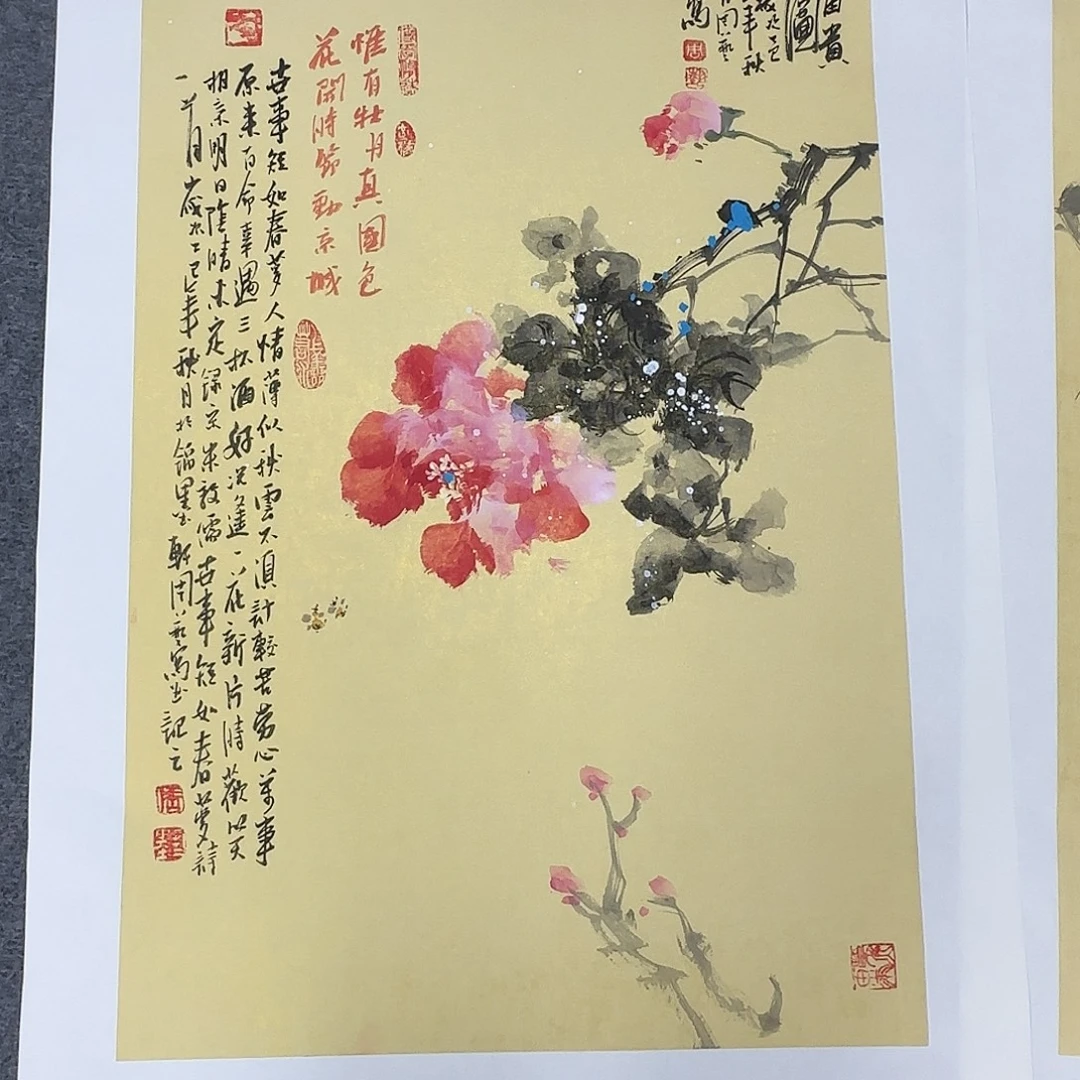 富貴
圖
乙巳
年秋
寫
惟有牡丹真國色
花開時節動京城
世事短如春夢人情薄似秋雲不須計較苦勞心萬事
原來有命幸遇三杯酒好況逢一朵花新片時歡笑
相親明日陰晴未定錄宋朱敦儒世事短如春夢詩
一首歲次乙巳年秋月於翰墨軒周藝寫並記之